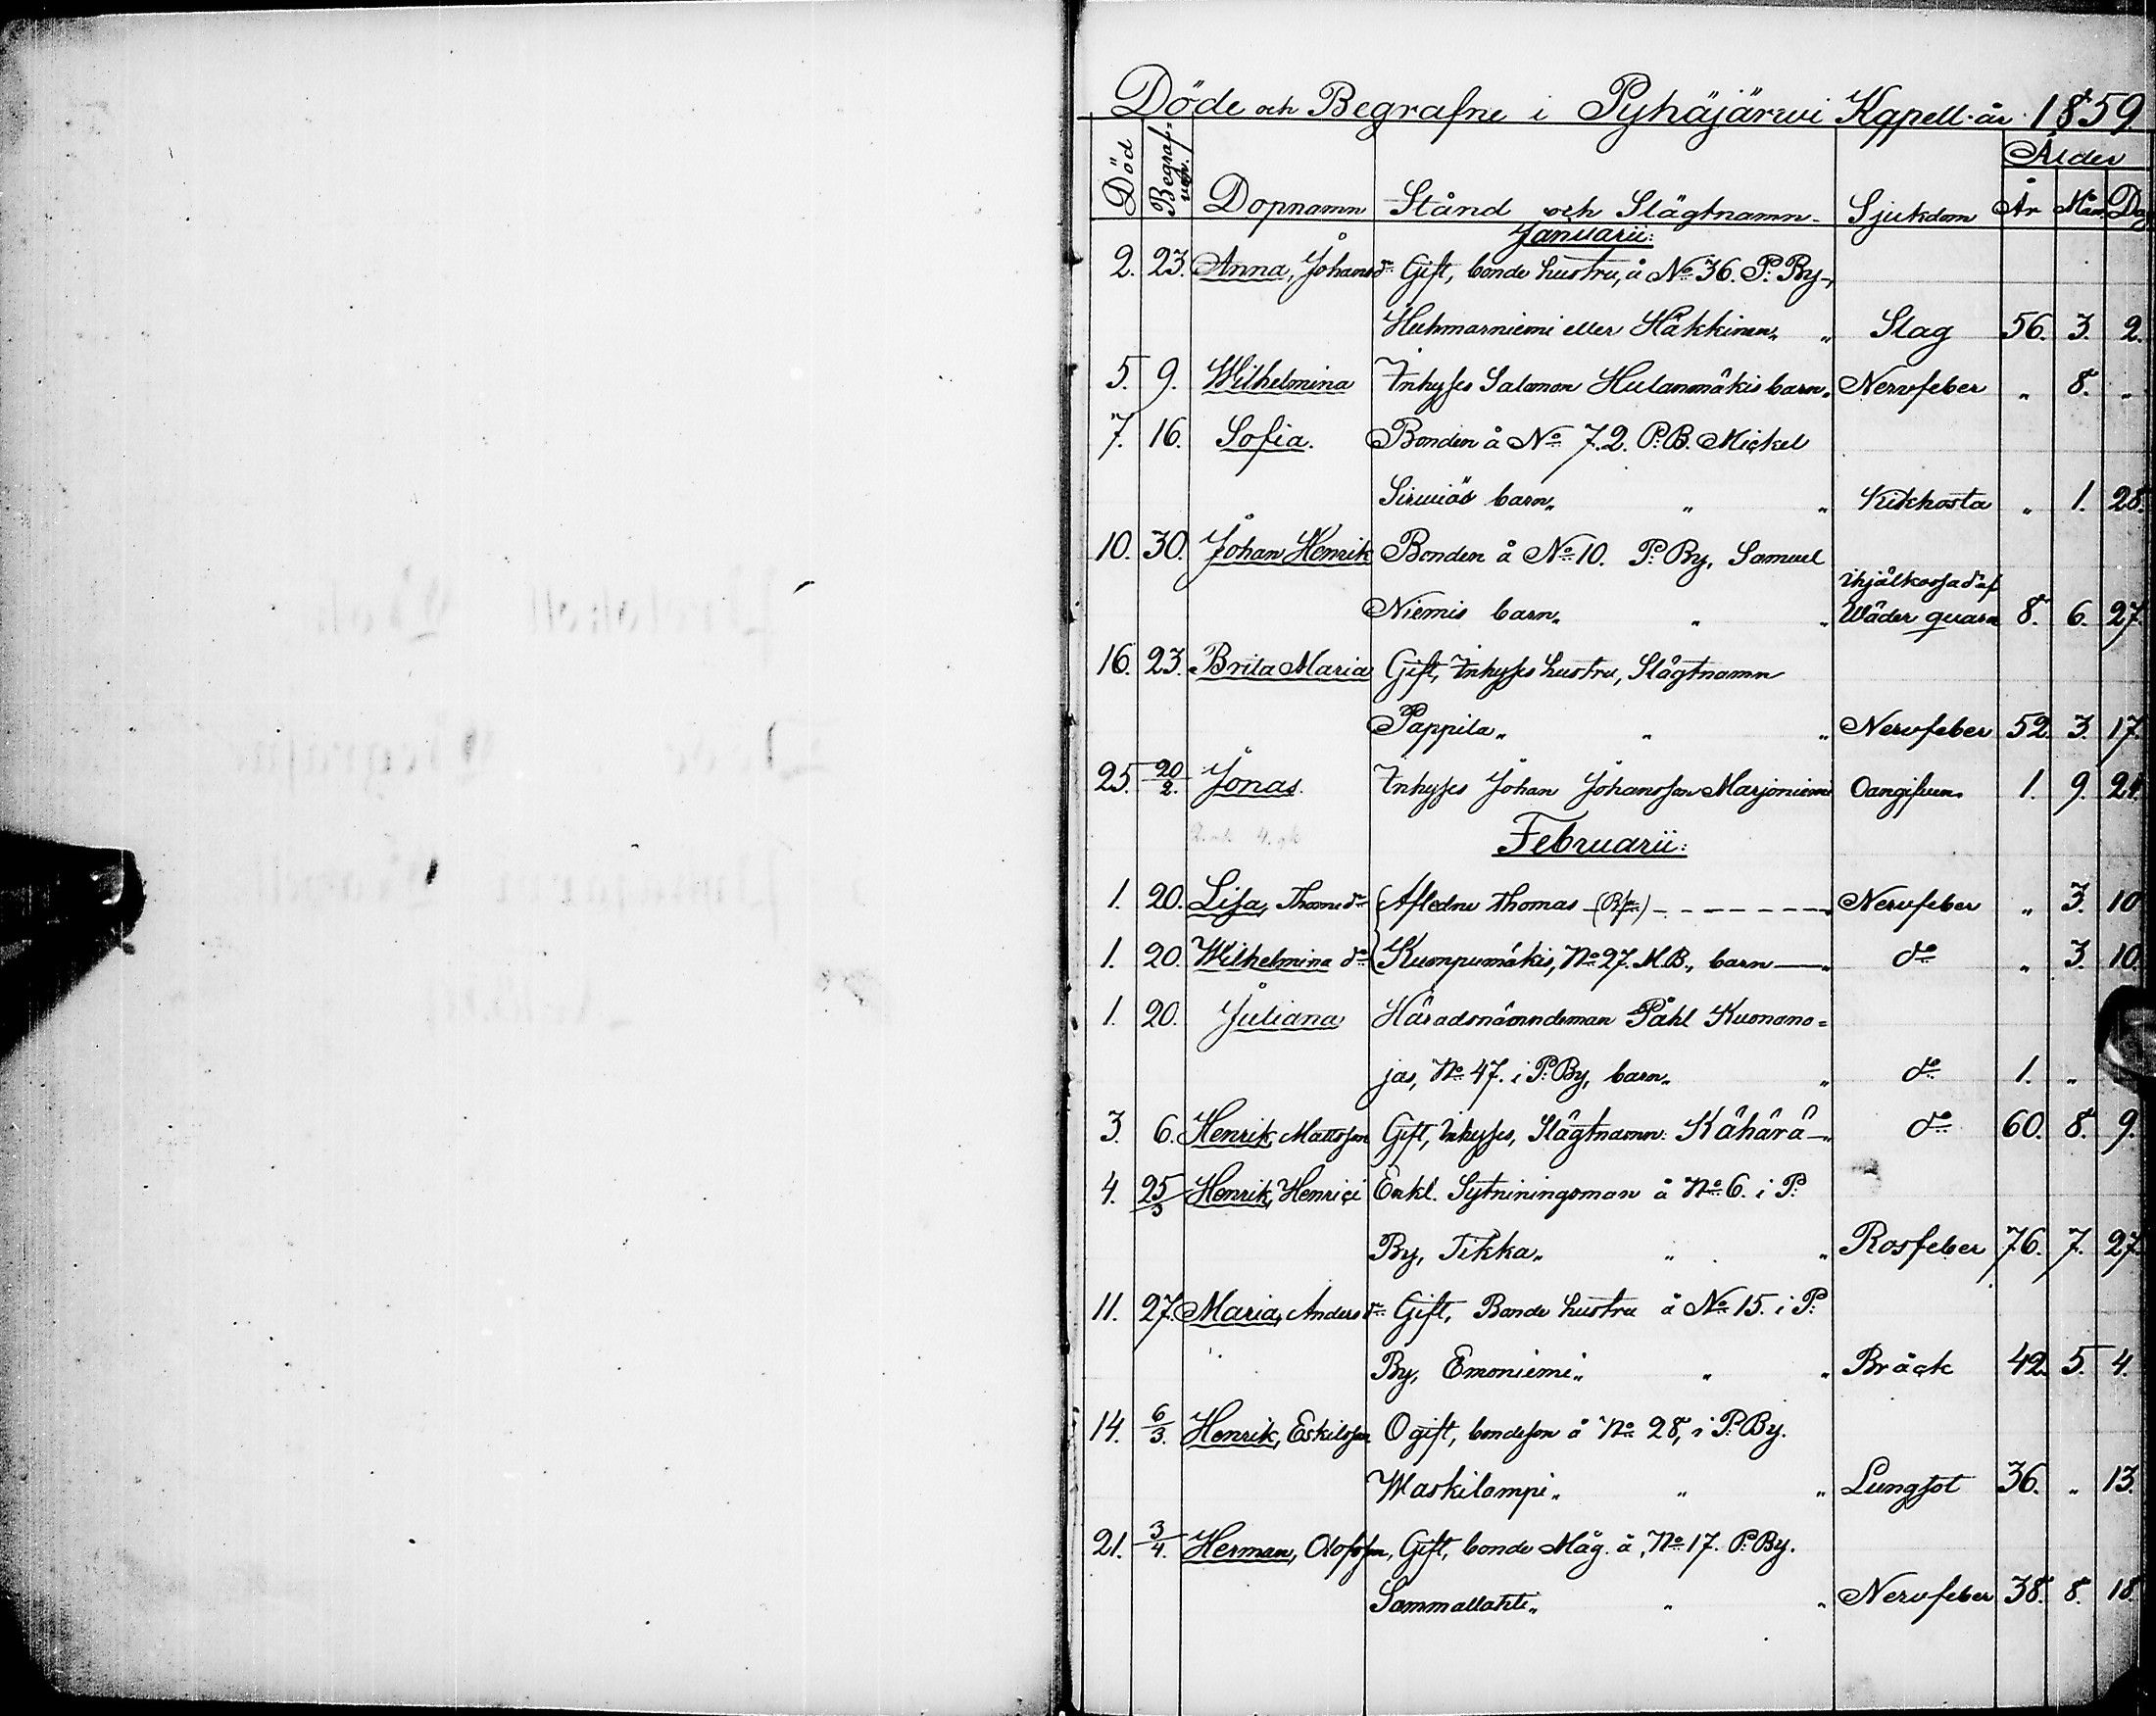 Döde och Begrafne i Pyhäjärwi Kapell år 1859.
Död Begraf= Dopnamn Stånd och Slägtnamn Sjukdom Ålder
År Mån. Dag
Januarii:
2. 23. Anna, Johansdr Gift, bonde hustru, å No 36. P. By,
Huhmarniemi eller Häkkinen „ „ Slag 56. 3. 2.
5. 9. Wilhelmina Inhyses Salomon Hulanmäkis barn „ Nervfeber „ 8. „
7. 16. Sofia. Bonden å No 7.2. P.B. Mickel
Sirwiös barn „ „ „ Kikhosta „ 1. 28.
10. 30. Johan Henrik Bonden å No 10. P. By, Samuel
ihjälkrossad af
Niemis barn „ „ „ Wäder quarn 8. 6. 27.
16. 23. Brita Maria Gift, Inhyses hustru, Slägtnamn
Pappila „ „ „ Nervfeber 52. 3. 17.
25. 20/2. Jonas. Inhyses Johan Johansson Marjoniemi Oangifven 1. 9. 24.
Februarii:
1. 20. Lisa, Thomedr Afledne Thomas Nervfeber „ 3. 10
1. 20. Wilhelmina do Kumpumäkis, No 27. M.B., barn — „ do „ 3. 10.
1. 20. Juliana Häradsnämndeman Påhl Kuonono=
jas, No 47. i P. By, barn „ „ do 1. „
3. 6. Henrik Mattsson Gift, Inhyses, Slägtnamn: Kähärä — „ do 60. 8. 9.
4. 25/3 Henrik, Henrici Enkl. Sytniningsman å No 6. i P.
By, Tikka „ „ „ Rosfeber 76. 7. 27.
11. 27. Maria, Andersdr Gift, Bonde hustru å No 15. i P.
By, Emoniemi „ „ „ Bråck 42. 5. 4.
14. 6/3. Henrik, Eskilsson Ogift, bondeson å No 28, i P. By.
Waskilampi „ „ „ Lungsot 36. „ 13.
21. 3/4. Herman, Olofsson, Gift, bonde Måg. å, No 17. P. By.
Sammallahti „ „ „ Nervfeber 38. 8. 18.